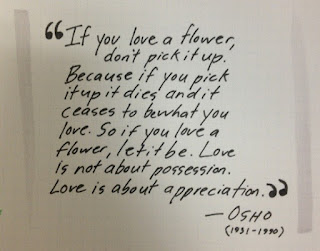 “If you love a flower,
don't pick it up.
Because if you pick
it up it dies and it
ceases to be what you
love. So if you love a
flower, let it be. Love
is not about possession.
Love is about appreciation.”
— OSHO
(1931-1990)